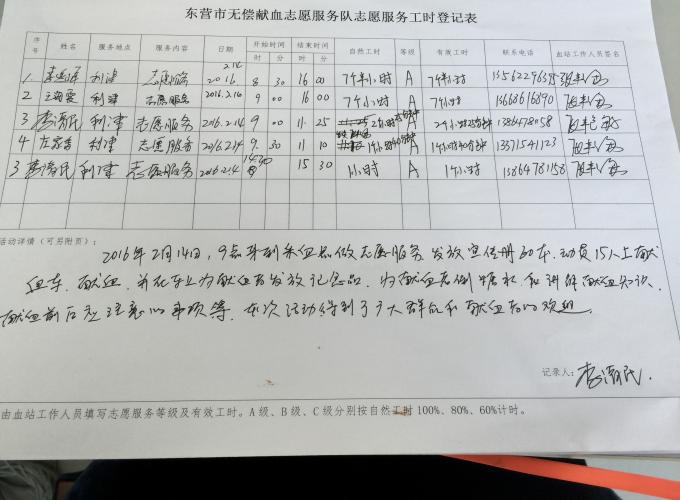 东营市无偿献血志愿服务队志愿服务工时登记表
序号 姓名 服务地点 服务内容 日期 开始时间 结束时间 自然工时 等级 有效工时 联系电话 血站工作人员签名
时 分 时 分
1 利津 志愿服务 2016 2.14 8 30 16 00 7小时 A 7小时
2 利津 志愿服务 2016.2.14 9 00 16 00 7小时 A 7小时 13668616890
3 利津 志愿服务 2016.2.14 9 00 11 25 2小时25分钟 A 2小时25分钟
4 利津 志愿服务 2016.2.14 9 30 11 10 1小时40分钟 A 1小时40分钟 13371541123
3 利津 志愿服务 2016.2.14 14 30 15 30 1小时 A 1小时 13864781158
活动详情(可另附页):
2016年2月14日,9点来到采血点做志愿服务,发放宣传册30本,动员15人上献
血车,献血,并在车上为献血者发放记念品,为献血者倒糖水和讲解献血知识,
献血前后应注意的事项等,本次活动得到了广大群众和献血者的欢迎.
记录人:
由血站工作人员填写志愿服务等级及有效工时。A级、B级、C级分别按自然工时100%、80%、60%计时。